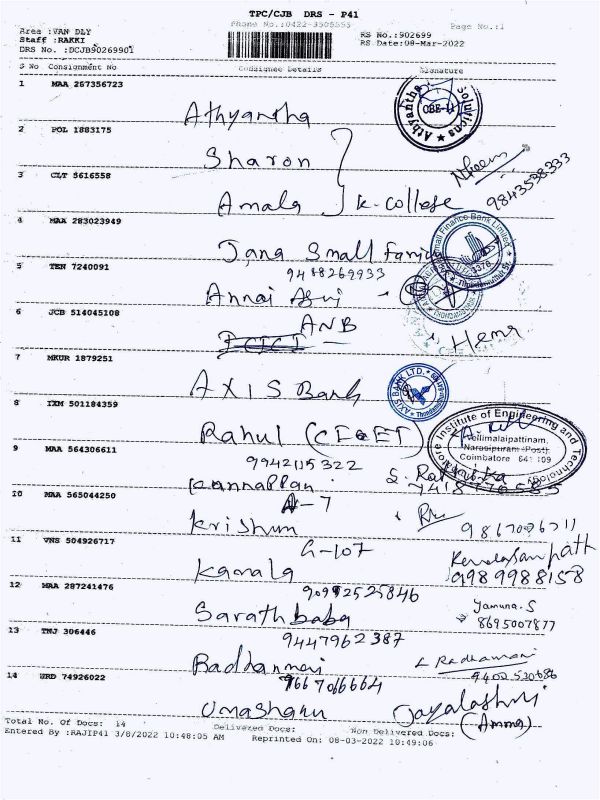 TPC/CJB DRS - P41
Phone No.:0422-3505555 Page No.:1
Area :VAN DLY
Staff :RAKKI
DRS No. :DCJB902699O1
RS No.:902699
RS Date:08-Mar-2022
S No Consignment No Consignee Details Signature
1 MAA 267356723
Athyantha
Athyantha Solutions
CBE-11
2 POL 1883175
Sharon
3 CLT 5616558
Amala } K-College
9843538333
4 MAA 283023949
Jana Small
Small Finance Bank Limited
5 TEN 7240091
9488269933
Annai
6 JCB 514045108
ANB
ICICI
Hema
7 MKUR 1879251
AXIS Bank
AXIS BANK LTD.
8 IXM 501184359
Rahul (CIEET)
Institute of Engineering and Technology
Vellimalaipattinam,
Narasipuram (Post)
Coimbatore 641 109
9 MAA 564306611
9942115322
Kannappan
10 MAA 565044250
A-7
Krishum
11 VNS 504926717
G-107
Kamala
9989988158
12 MAA 287241476
Sarathbaba
Yamuna.S
8695007877
13 TNJ 306446
9447962387
L Radhamani
14 NRD 74926022
Umasharu
(Amma)
Total No. Of Docs: 14 Delivered Docs: Non Delivered Docs:
Entered By :RAJIP41 3/8/2022 10:48:05 AM Reprinted On: 08-03-2022 10:49:06